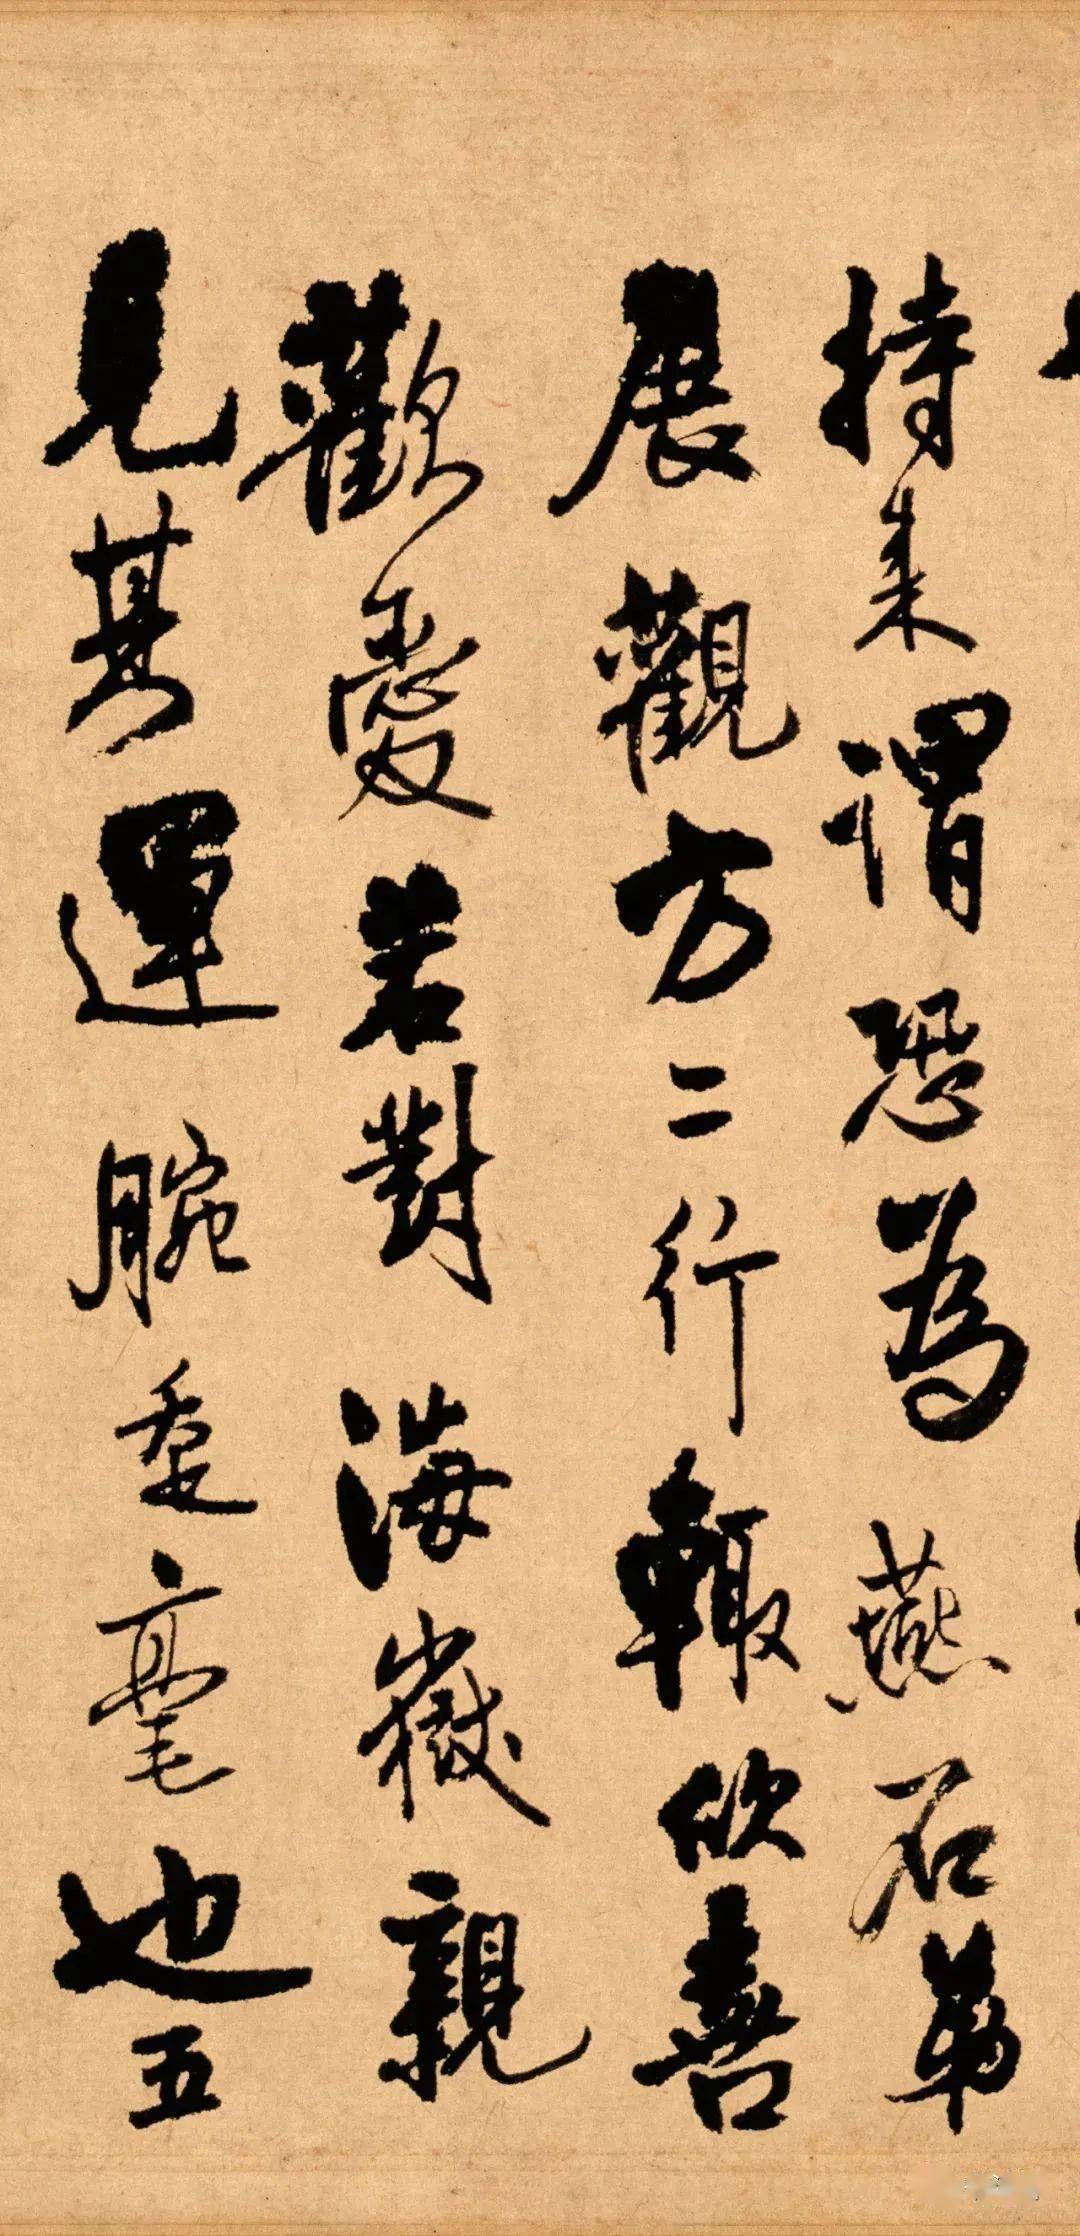 持来謂恐為燕石第
展觀方二行輙欣喜
歡愛若對海嶽親
見其運腕垂毫也五